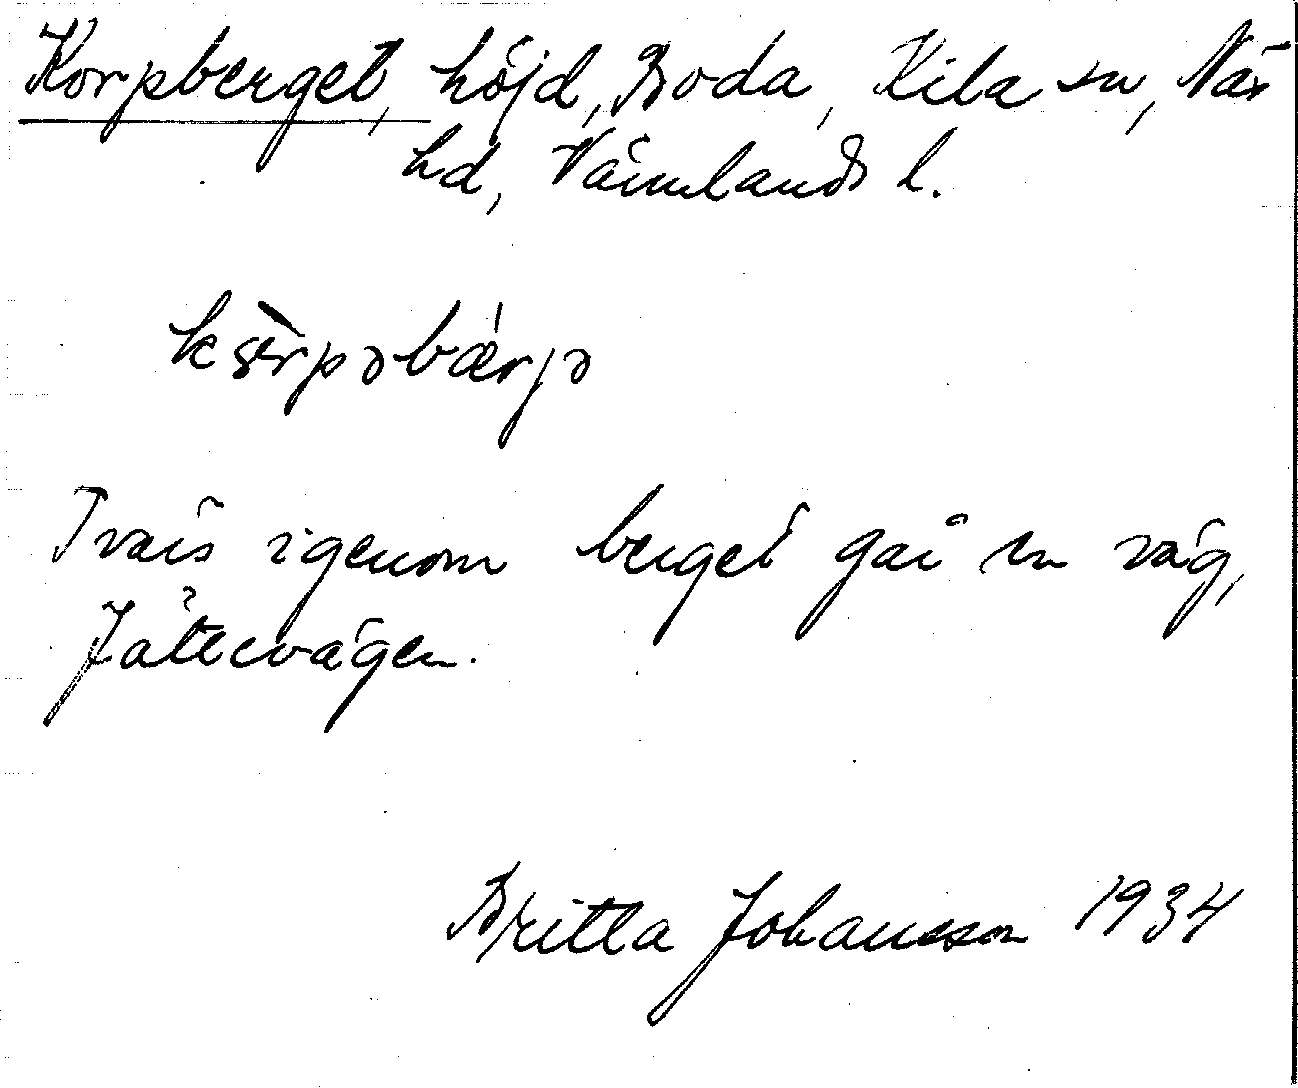 Korpberget, höjd, Boda, Kila sn, Näs
hd, Värmlands l.
Tvärs igenom berget går en väg,
Jättevägen.
Britta Johansson 1934